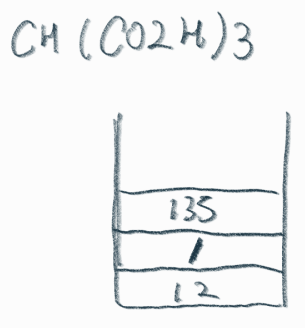 CH(CO2H)3
135
/
12